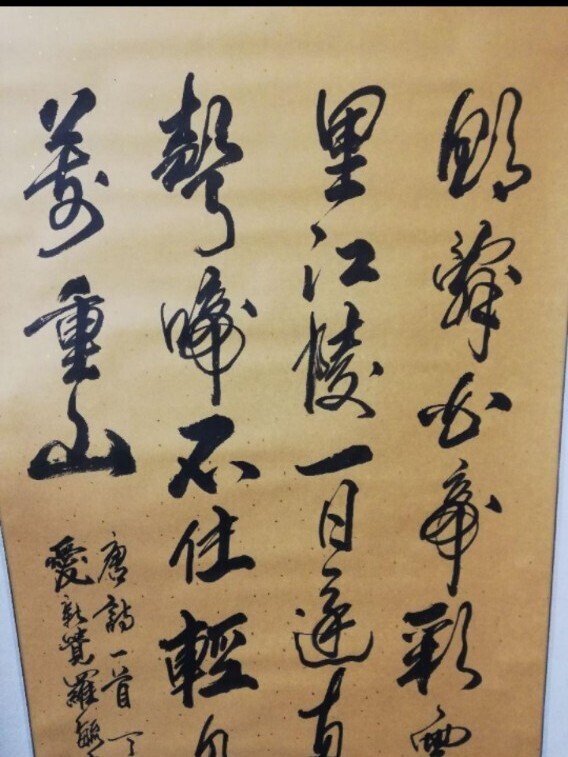 朝辭白帝彩雲
里江陵一日還兩
聲啼不住輕舟
萬重山
唐詩一首丁
愛新覺羅毓